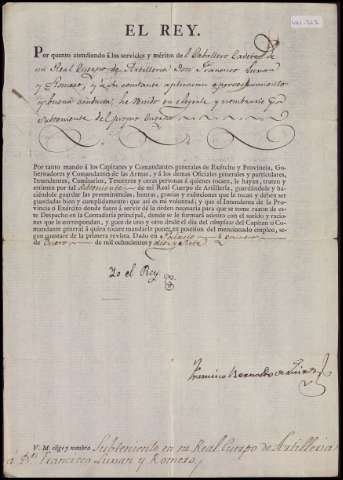 EL REY.
Por quanto atendiendo á los servicios y mérito de el Caballero Cadete de
mi Real Cuerpo de Artilleria Don Francisco Luxan
y Romero, y á su constante aplicacion aprovechamiento
y buena conducta; he venido en elegirle y nombrarle por
Subteniente del propio Cuerpo
Por tanto mando á los Capitanes y Comandantes generales de Exército y Provincia, Go-
bernadores y Comandantes de las Armas, y á los demas Oficiales generales y particulares,
Intendentes, Comisarios, Tesoreros y otras personas á quienes tocare, le hayan, traten y
estimen por tal Subteniente de mi Real Cuerpo de Artillería, guardándole y ha-
ciéndole guardar las preeminencias, honras, gracias y exênciones que le tocan y deben ser
guardadas bien y cumplidamente: que así es mi voluntad; y que el Intendente de la Provin-
cia ó Exército donde fuere á servir dé la órden necesaria para que se tome razon de es-
te Despacho en la Contaduría principal, donde se le formará asiento con el sueldo y racio-
nes que le correspondan, y goce de uno y otro desde el dia del cúmplase del Capitan ó Co-
mandante general á quien tocare mandarle poner en posesion del mencionado empleo, se-
gun constare de la primera revista. Dado en Palacio á
de Enero de mil ochocientos y diez y siete
Yo el Rey
Francisco Bernaldo de Quirós
V. M. elige y nombra Subteniente en su Real Cuerpo de Artilleria
á Dn Francisco Luxan y Romero